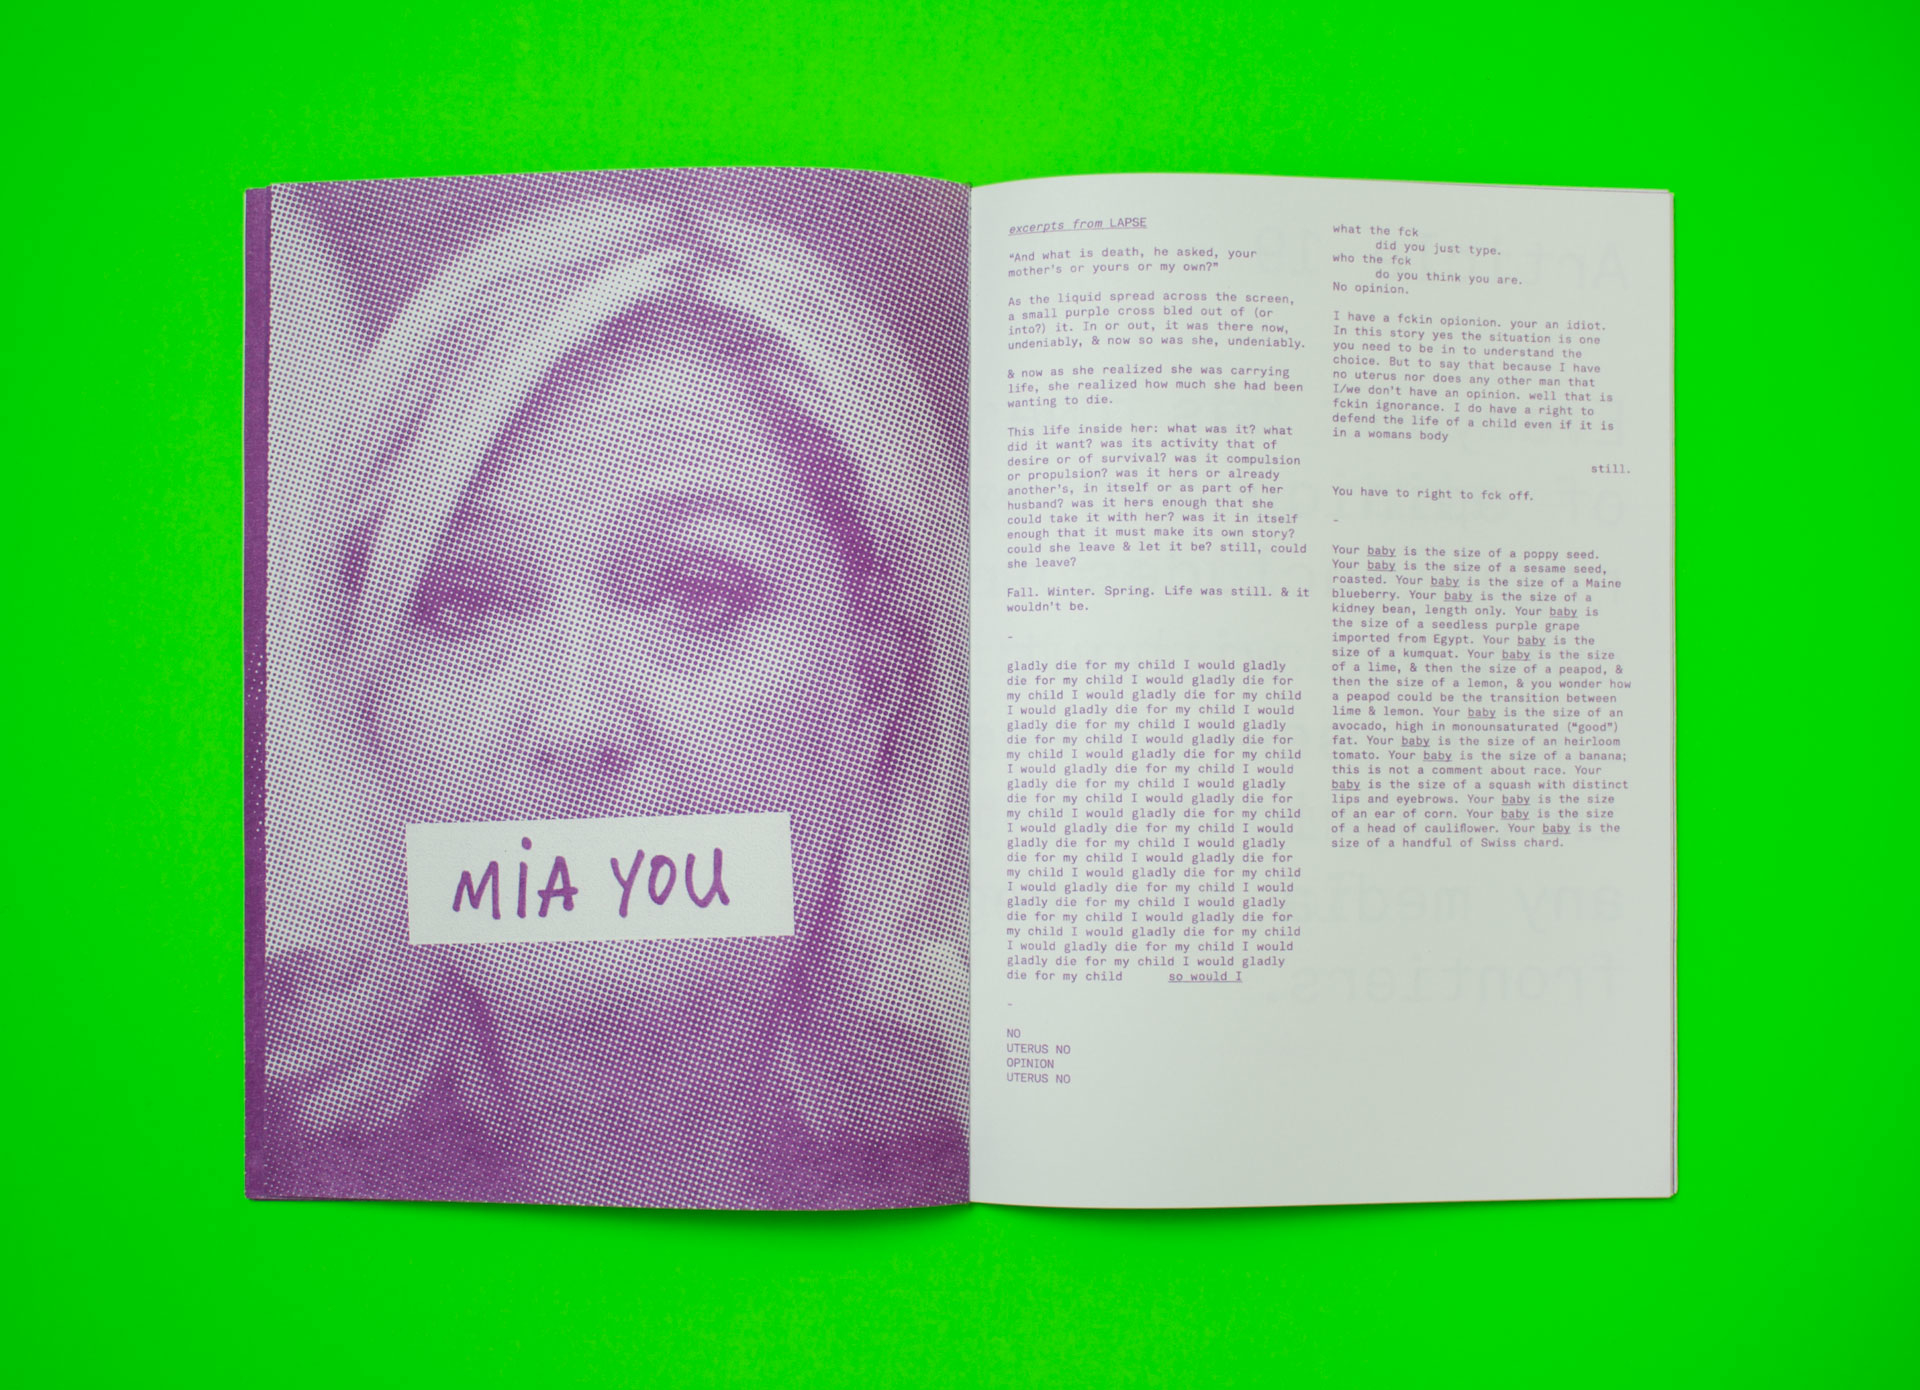 MiA YOU
excerpts from LAPSE
“And what is death, he asked, your
mother’s or yours or my own?”
As the liquid spread across the screen,
a small purple cross bled out of (or
into?) it. In or out, it was there now,
undeniably, & now so was she, undeniably.
& now as she realized she was carrying
life, she realized how much she had been
wanting to die.
This life inside her: what was it? what
did it want? was its activity that of
desire or of survival? was it compulsion
or propulsion? was it hers or already
another’s, in itself or as part of her
husband? was it hers enough that she
could take it with her? was it in itself
enough that it must make its own story?
could she leave & let it be? still, could
she leave?
Fall. Winter. Spring. Life was still. & it
wouldn’t be.
–
gladly die for my child I would gladly
die for my child I would gladly die for
my child I would gladly die for my child
I would gladly die for my child I would
gladly die for my child I would gladly
die for my child I would gladly die for
my child I would gladly die for my child
I would gladly die for my child I would
gladly die for my child I would gladly
die for my child I would gladly die for
my child I would gladly die for my child
I would gladly die for my child I would
gladly die for my child I would gladly
die for my child I would gladly die for
my child I would gladly die for my child
I would gladly die for my child I would
gladly die for my child I would gladly
die for my child I would gladly die for
my child I would gladly die for my child
I would gladly die for my child I would
gladly die for my child I would gladly
die for my child so would I
–
NO
UTERUS NO
OPINION
UTERUS NO
what the fck
did you just type.
who the fck
do you think you are.
No opinion.
I have a fckin opionion. your an idiot.
In this story yes the situation is one
you need to be in to understand the
choice. But to say that because I have
no uterus nor does any other man that
I/we don’t have an opinion. well that is
fckin ignorance. I do have a right to
defend the life of a child even if it is
in a womans body
still.
You have to right to fck off.
–
Your baby is the size of a poppy seed.
Your baby is the size of a sesame seed,
roasted. Your baby is the size of a Maine
blueberry. Your baby is the size of a
kidney bean, length only. Your baby is
the size of a seedless purple grape
imported from Egypt. Your baby is the
size of a kumquat. Your baby is the size
of a lime, & then the size of a peapod, &
then the size of a lemon, & you wonder how
a peapod could be the transition between
lime & lemon. Your baby is the size of an
avocado, high in monounsaturated (“good”)
fat. Your baby is the size of an heirloom
tomato. Your baby is the size of a banana;
this is not a comment about race. Your
baby is the size of a squash with distinct
lips and eyebrows. Your baby is the size
of an ear of corn. Your baby is the size
of a head of cauliflower. Your baby is the
size of a handful of Swiss chard.